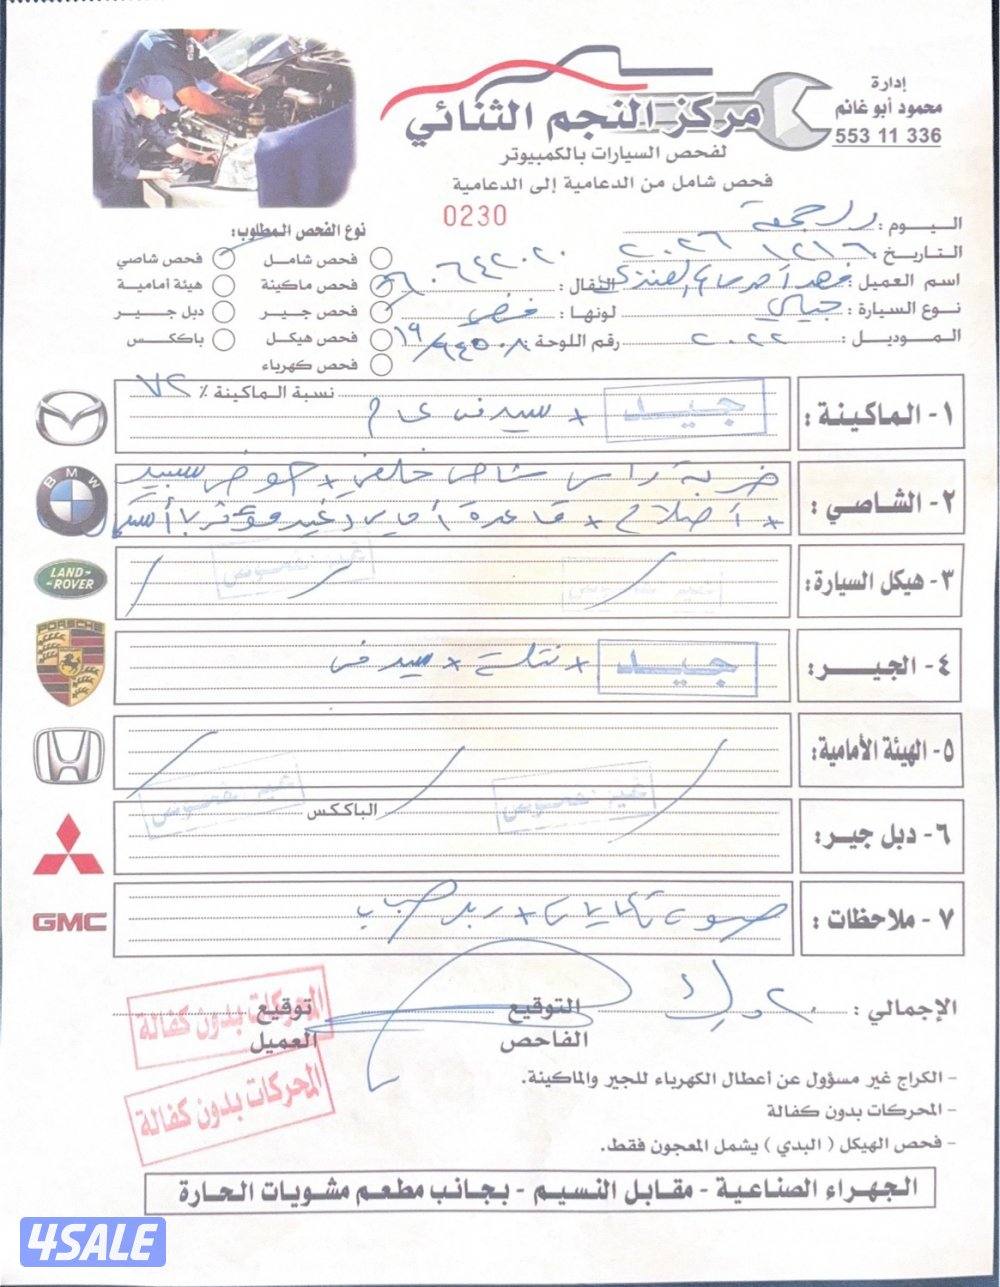 إدارة
محمود أبو غانم
553 11 336
مركز النجم الثنائي
لفحص السيارات بالكمبيوتر
فحص شامل من الدعامية إلى الدعامية
0230
اليوم : الجمعة
التاريخ
اسم العميل : فهد
النقال :
نوع السيارة : جيلي
لونها : فضي
الموديل : ٢٠٢٢
رقم اللوحة :
نوع الفحص المطلوب :
فحص شامل
فحص شاصي
فحص ماكينة
هيئة أمامية
فحص جير
دبل جيير
فحص هيكل
باككس
فحص كهرباء
١- الماكينة :
نسبة الماكينة ٪ ٧٢
جيد
٢- الشاصي :
ضربة راس شاصي خلفي +
+ أضلاع + قاعدة
٣- هيكل السيارة :
غير مفحوص
غير مفحوص
٤- الجير :
جيد + نتلة +
٥- الهيئة الأمامية :
غير مفحوص
غير مفحوص
٦- دبل جير :
الباككس
٧- ملاحظات :
صوت
الإجمالي :
التوقيع
الفاحص
توقيع
العميل
المحركات بدون كفالة
المحركات بدون كفالة
- الكراج غير مسؤول عن أعطال الكهرباء للجير والماكينة.
- المحركات بدون كفالة
- فحص الهيكل ( البدي ) يشمل المعجون فقط.
الجهراء الصناعية - مقابل النسيم - بجانب مطعم مشويات الحارة
BMW
LAND-
-ROVER
PORSCHE
GMC
4SALE